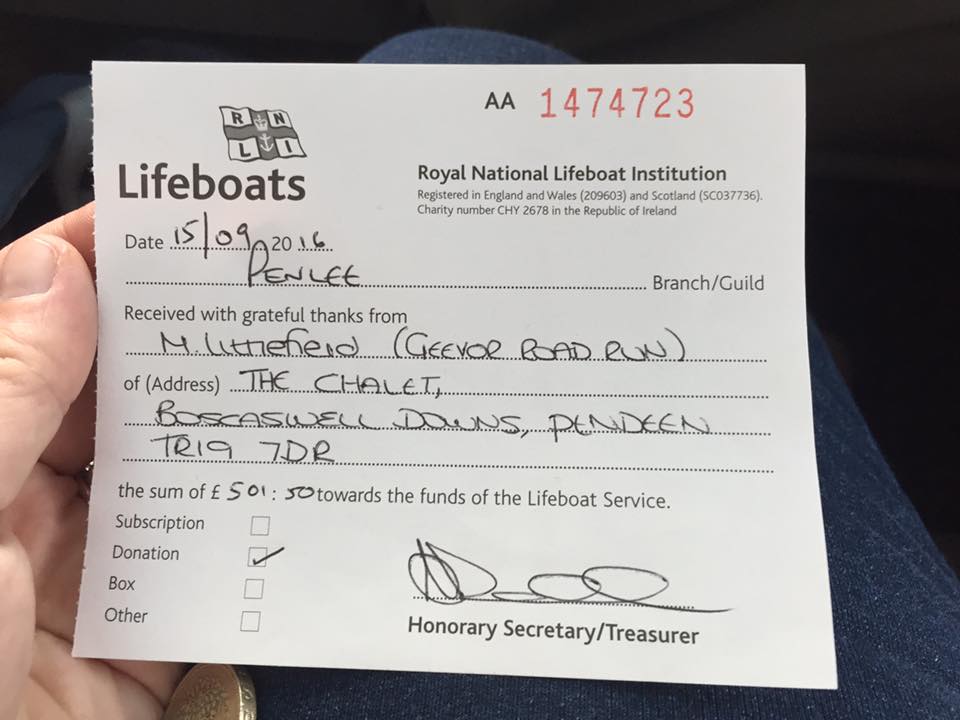 AA 1474723
R N
L I
Lifeboats
Royal National Lifeboat Institution
Registered in England and Wales (209603) and Scotland (SC037736).
Charity number CHY 2678 in the Republic of Ireland
Date 15/09 2016
PENLEE Branch/Guild
Received with grateful thanks from
M. Littlefield (GEEVOR ROAD RUN)
of (Address) THE CHALET,
BOSCASWELL DOWNS, PENDEEN
TR19 7DR
the sum of £ 501:50 towards the funds of the Lifeboat Service.
Subscription
Donation ✓
Box
Other
Honorary Secretary/Treasurer